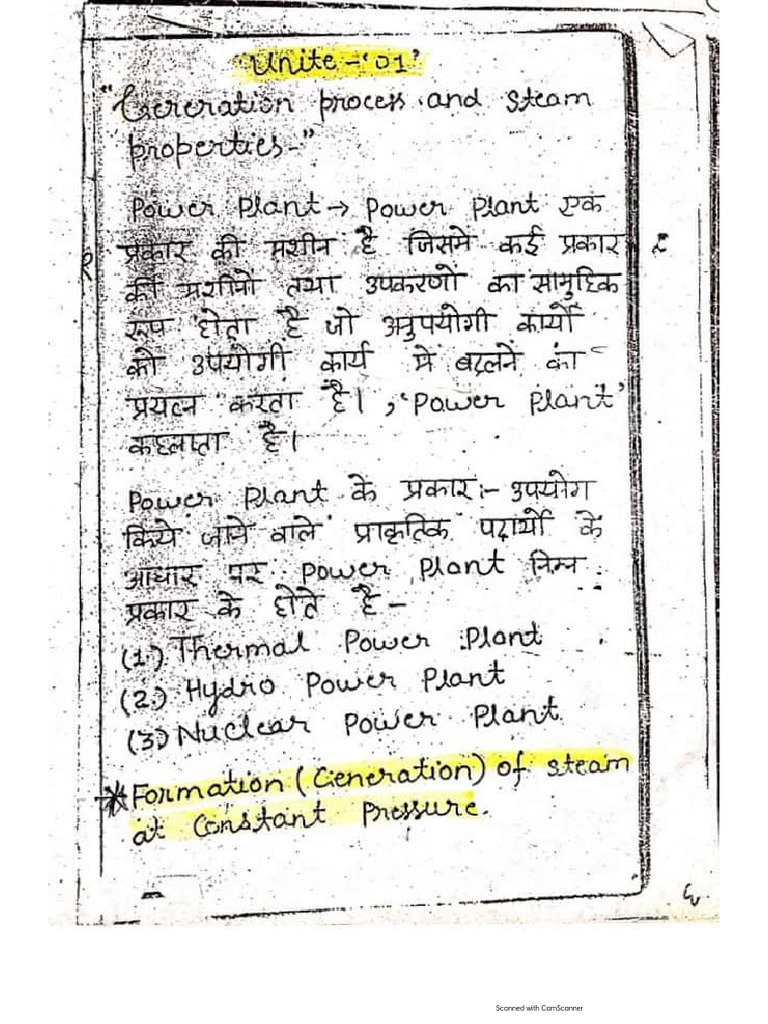 Unite - '01'
"Generation process and steam
properties-"
Power Plant → Power Plant एक
प्रकार की मशीन है जिसमे कई प्रकार
की मशीनों तथा उपकरणों का सामुहिक
रूप होता है जो अनुपयोगी कार्यो
को उपयोगी कार्य में बदलने का
प्रयत्न करता है। , 'Power Plant'
कहलाता है।
Power Plant के प्रकार :- उपयोग
किये जाने वाले प्राकृतिक पदार्थो के
आधार पर Power Plant निम्न
प्रकार के होते है -
(1.) Thermal Power Plant
(2.) Hydro Power Plant
(3.) Nuclear Power Plant
* Formation (Generation) of steam
at Constant Pressure.
Scanned with CamScanner